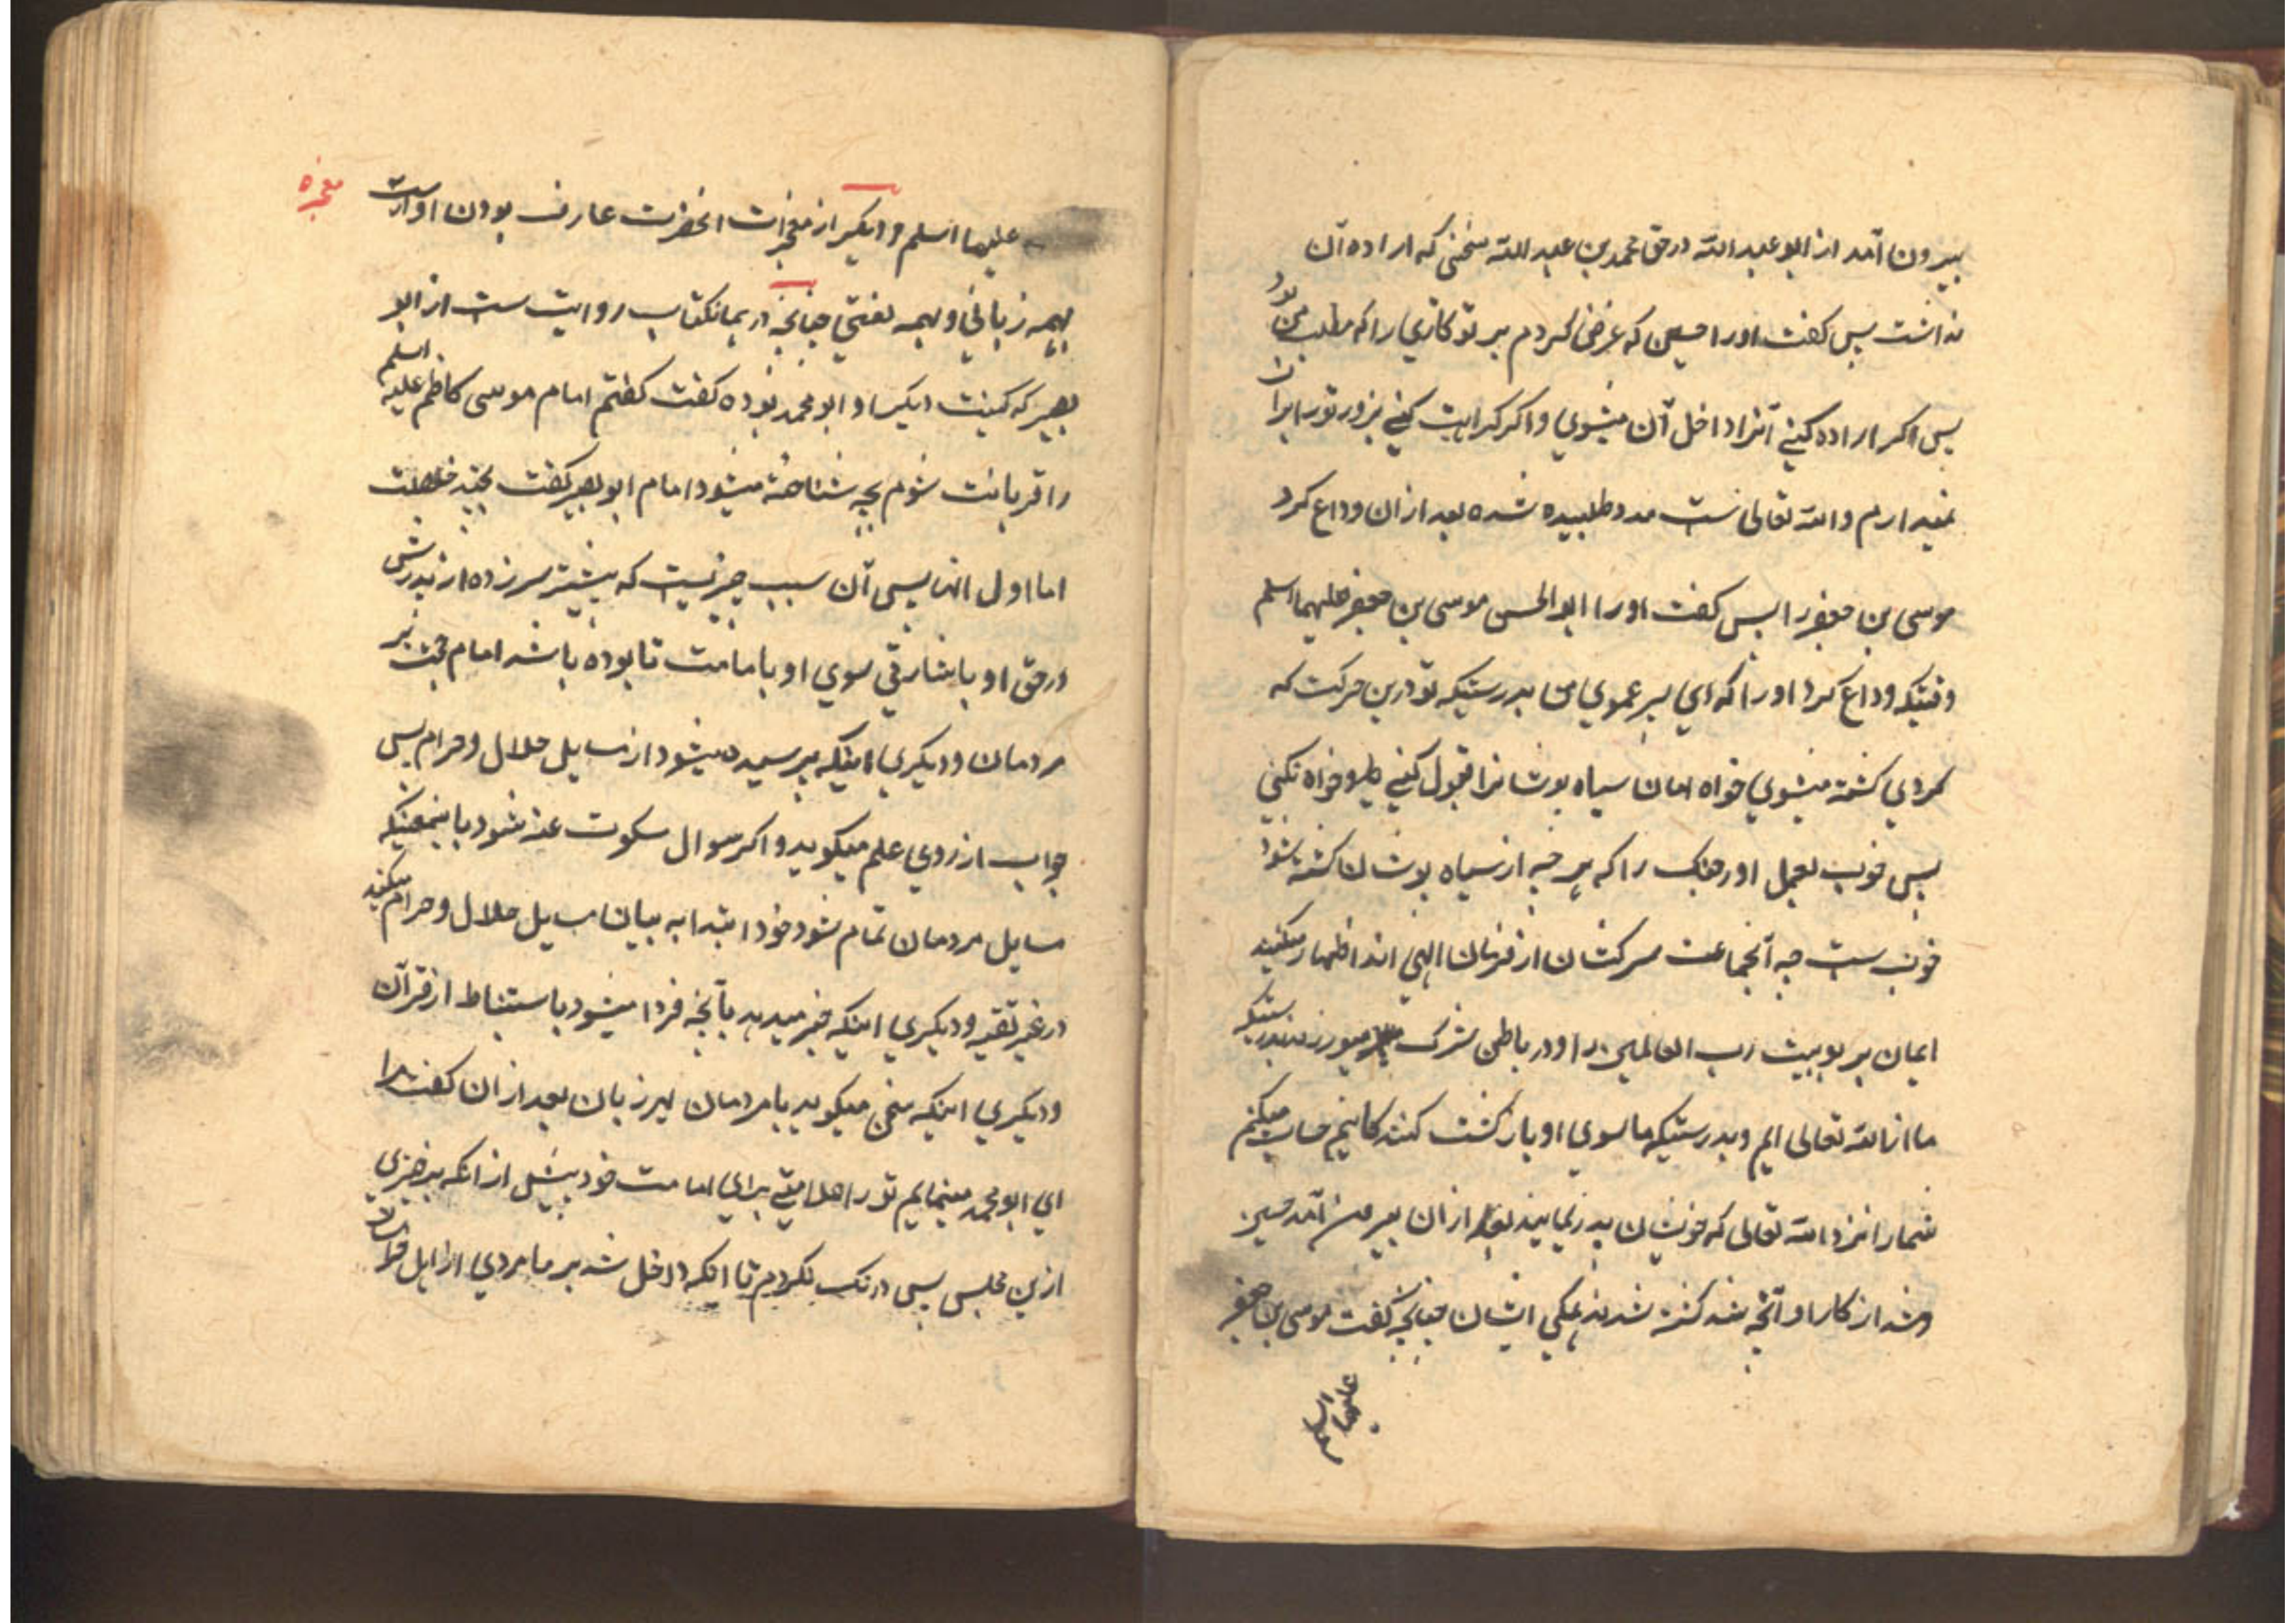 بیرون آمد از ابو عبد الله در حق محمد بن عبد الله سخنی که اراده آن
نداشت پس کفت او را حسین که عرض کردم بر تو کاری را که مطلب من بود
پس اکر اراده کنی آنرا داخل آن میشوی و اکر کراهیت کنی بزور ترا بران
نمیدارم و الله تعالی ست مدد طلبیده شده بعد ازان وداع کرد
موسی بن جعفر را پس کفت او را ابو الحسن موسی بن جعفر علیهما السلم
وقتیکه وداع کرد او را که ای پسر عموی من بدرستیکه تو درین حرکت که
کردی کشته میشوی خواه امان سیاه پوشانرا قبول کنی و خواه نکنی
پس خوب بعمل آور جنک را که هر چه از سیاه پوشان کشته شود
خوب ست چه آنجماعت سرکشان از فرمان الهی اند اظهار میکنند
ایمان بربوبیت رب العالمین را و در باطن شرک میورزند بدرستیکه
ما از الله تعالی ایم و بدرستیکه ما سوی او بازکشت کننده کانیم حساب میکنم
شما را نزد الله تعالی که خویشان پدر نمایید بعد ازان بیرون آمد حسین
و شد از کار او آنچه شد کشته شدند همکی ایشان چنانچه کفت موسی بن جعفر
علیهما السلم
علیهما السلم و دیکر از معجزات انحضرت عارف بودن اوست
معجزه
بهمه زبانی و بهمه لغتی چنانچه در همانکتاب روایت ست از ابو
بصیر که کنیت دیکر او ابو محمد بوده کفت کفتم امام موسی کاظم علیه السلم
را قربانت شوم بچه شناخته میشود امام ابو بصیر کفت بچند خصلت
اما اول انها پس آن سبب چیزیست که پیشتر سر زده از پدرش
در حق او باشارتی سوی او بامامت تا بوده باشد امام حجت بر
مردمان و دیکری اینکه پرسیده میشود از مسایل حلال و حرام پس
جواب از روی علم میکوید و اکر سوال سکوت عنه شود باینمعنیکه
مسایل مردمان تمام شود خود ابتدا به بیان مسایل حلال و حرام میکند
در غیر تقیه و دیکری اینکه خبر میدهد بآنچه فردا میشود باستنباط از قرآن
و دیکری اینکه سخن میکوید با مردمان بهر زبان بعد ازان کفت مرا
ای ابو محمد مینمایم تو را علامتی برای امامت خود پیش از انکه برخیزی
ازین مجلس پس درنک نکردم تا اینکه داخل شد بر ما مردی از اهل خراسان